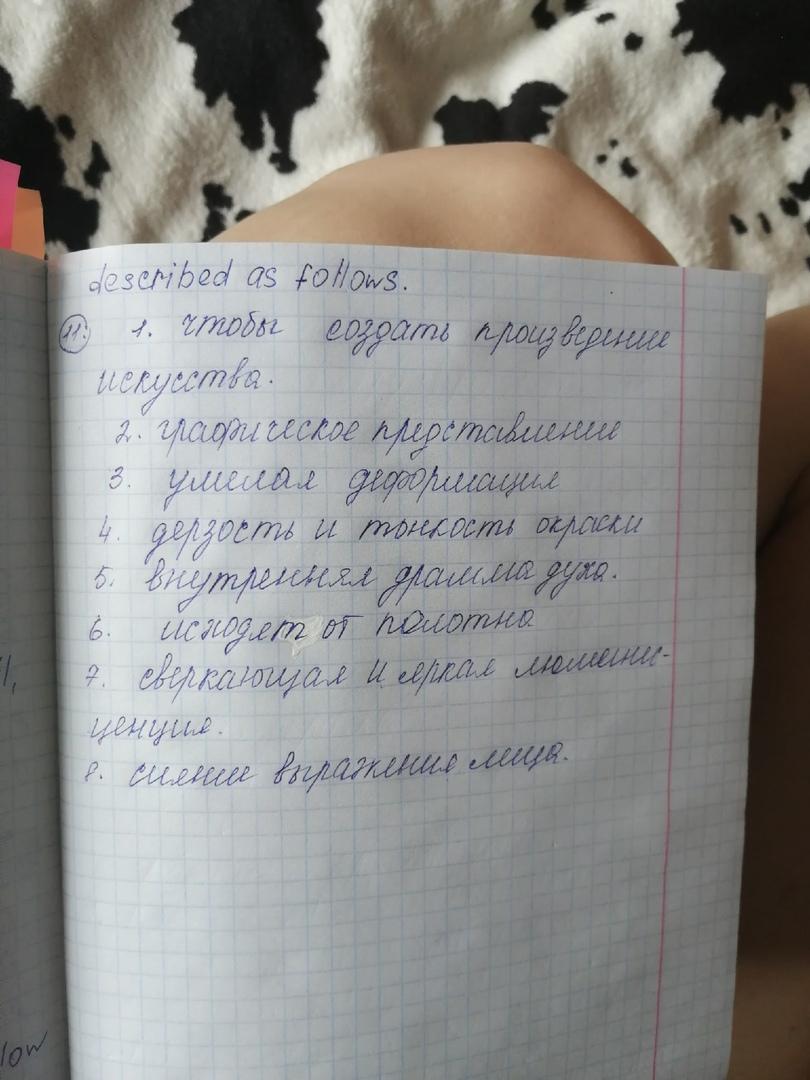 described as follows.
11. 1. чтобы создать произведение
искусства.
2. графическое представление
3. умелая деформация
4. дерзость и тонкость окраски
5. внутренняя драмма духа.
6. исходят от полотна
7. сверкающая и яркая люмини-
ценция.
8. сияние выражения лица.
low